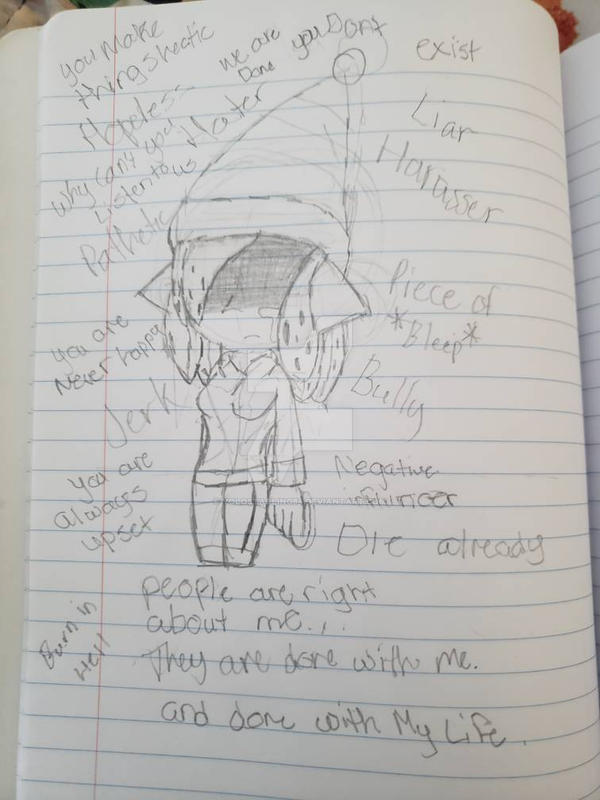 you Make
things hectic
Hopeless
we are
Done
you Dont
exist
Hater
Liar
Harasser
why can't you
Listen to us
Pathetic
Piece of
*Bleep*
you are
Never happy
Jerk
Bully
you are
always
upset
Negative
influncer
Die already
people are right
about me...
They are done with me.
and done with My Life.
Burn in
Hell